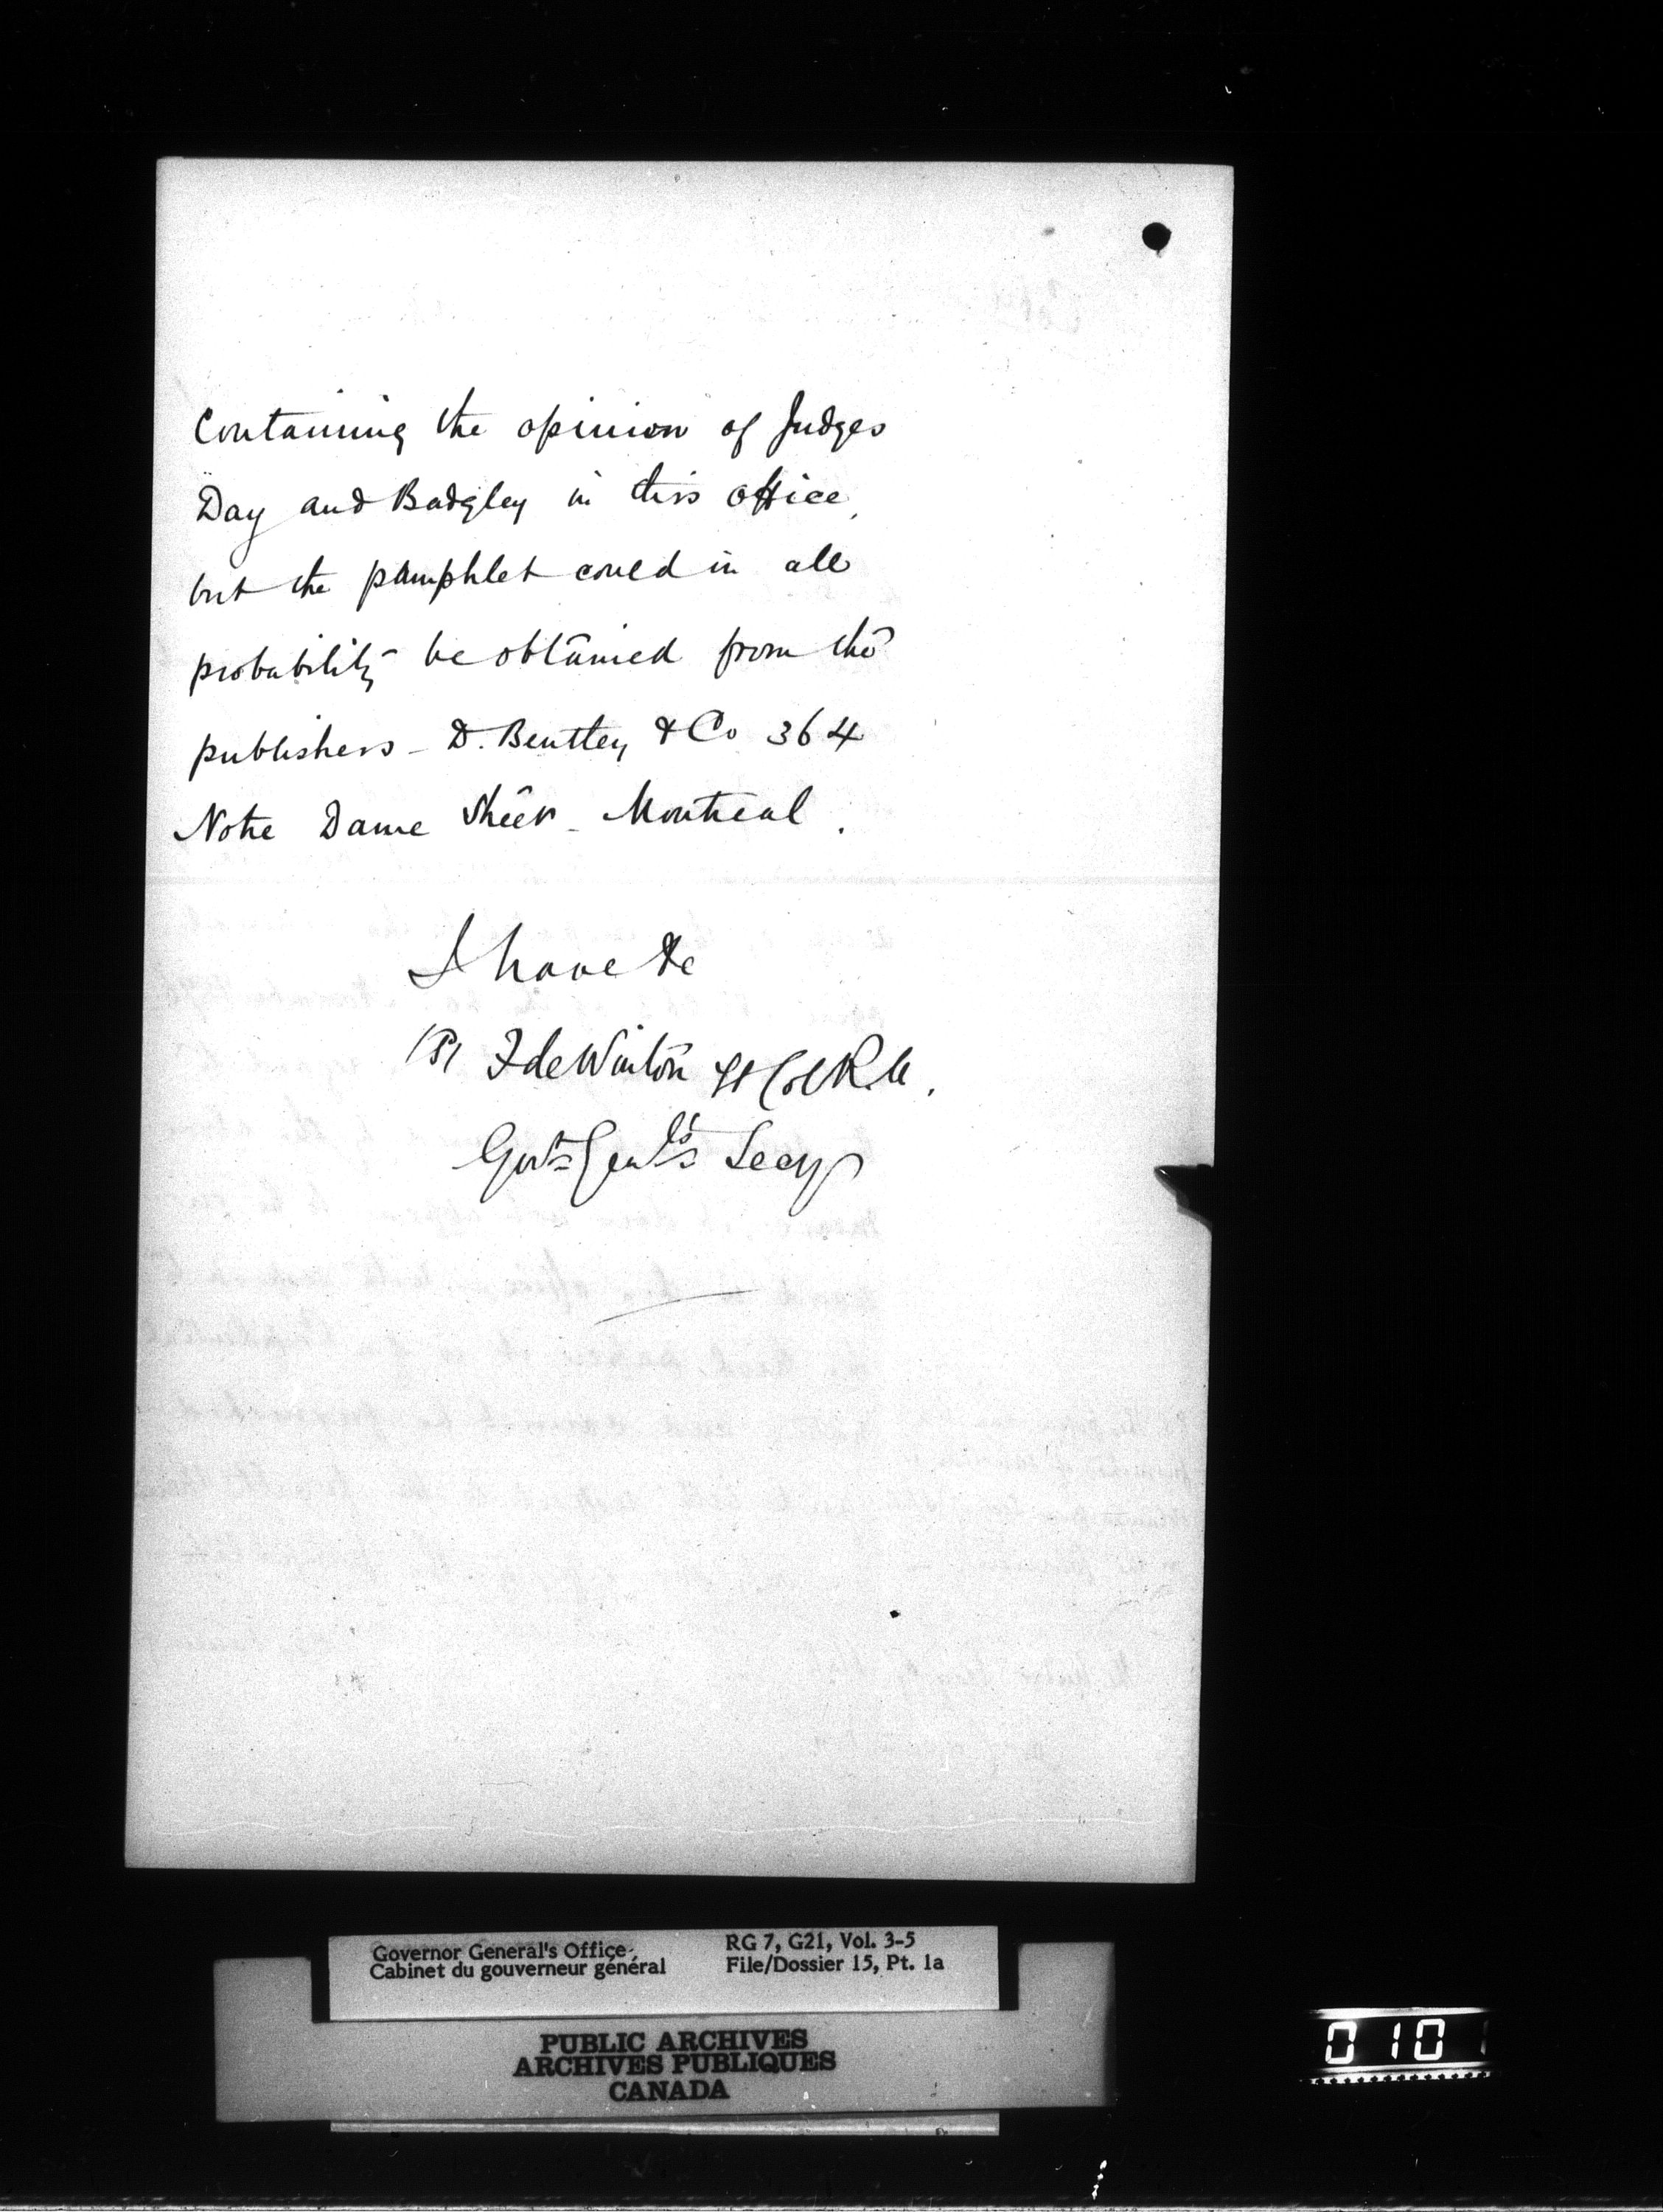 Containing the opinion of Judges
Day and Badgley in this office,
but the pamphlet could in all
probability be obtained from the
publishers - D. Bentley & Co 364
Notre Dame Street - Montreal.
I have &c
(S) F de Winton Lt Col R.A.
Govr Genl's Secy
Governor General's Office
Cabinet du gouverneur général
RG 7, G21, Vol. 3-5
File/Dossier 15, Pt. 1a
PUBLIC ARCHIVES
ARCHIVES PUBLIQUES
CANADA
0101